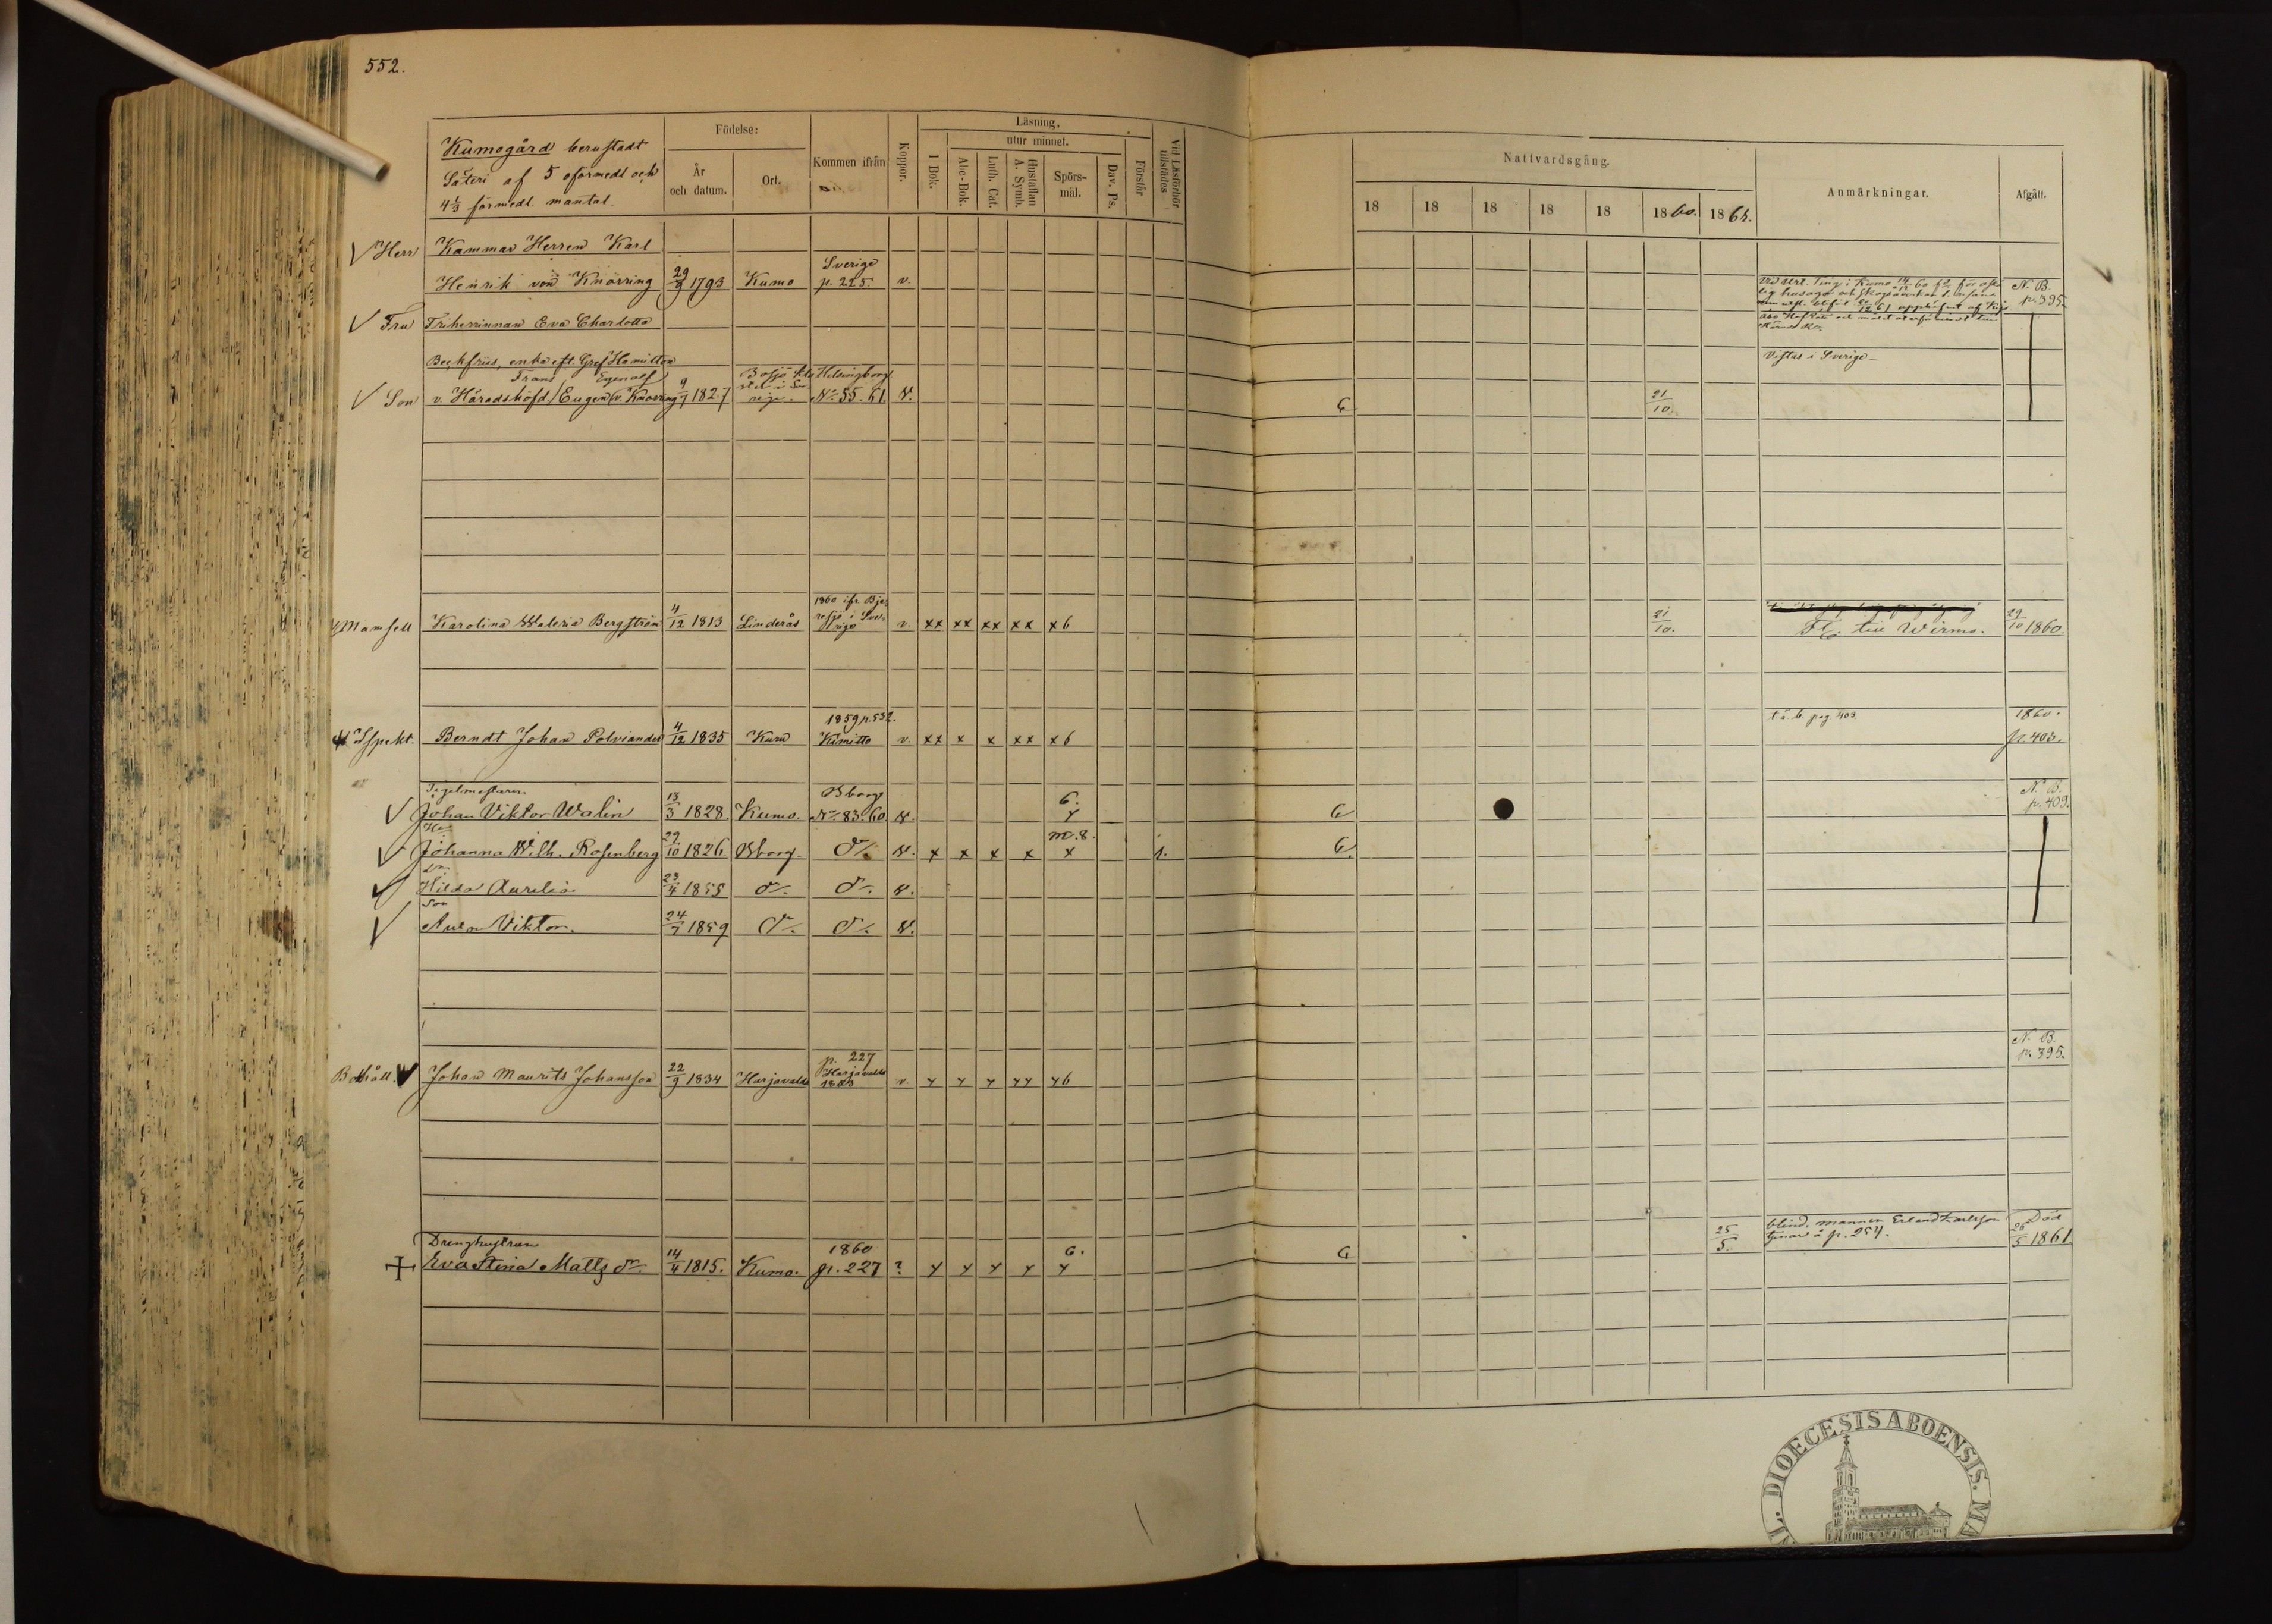 552.
Kumogård berustadt
Säteri af 5 oförmedl och
4 1/3 förmedl. mantal.
Födelse:
År
och datum.
Ort.
Kommen ifrån
Koppor.
Läsning,
utur minnet.
I Bok.
Abc-Bok.
Luth. Cat.
Hustaflan
A. Symb.
Spörs-
mål.
Dav. Ps.
Förstår
Vid Läsförhör
tillstädes
Nattvardsgång.
18 18 18 18 18 1860. 1861.
Anmärkningar.
Afgått.
Herr Kammar Herren Karl
Henrik von Knorring 1793 Kumo Sverige p. 225. v.
N. B.
p. 395.
Fru Friherrinnan Eva Charlotta
Beckfriis, enka eft. Gref Hamilton
Vistas i Sverige
Frans Egenolf
Son v. Häradshöfd. Eugen v. Knorring 1827 Helsingborg
No. 55. 61. v. G 21/10.
Mamsell Karolina Waleria Bergström 4/12 1813 Linderås 1860 ifr. Bje-
resjö i Sve-
rige v. xx xx xx xx x6 21/10. Fl. till Wirmo. 29/10 1860.
Ispekt. Berndt Johan Polviander 4/12 1835 Kuru 1859 p. 532.
Kimitto v. xx x x xx x6
t. å. b. pag 403
1860.
p. 403.
Tegelmästaren
Johan Viktor Walin 13/3 1828. Kumo. Bborg
No. 83. 60. v. 6. G
N. B.
p. 409.
Hu
Johanna Wilh. Rosenberg 29/10 1826. Bborg. d:o v. x x x x x 1. G
Hilda Aurelia 23/4 1858 d:o d:o v.
Son
Viktor. 24/7 1859 d:o d:o v.
N. B.
p. 395.
Bokhåll. Johan Maurits Johansson 22/9 1834 Harjavalta p. 227
Harjavalta v. x x x xx x6
Drenghustrun
Eva Stina Matts dr. 14/4 1815. Kumo. 1860
p. 227 ? x x x x x 6. G 25/5.
blind. mannen Erland Karlsson
tjenar å p. 254.
Död
26/5 1861
DIOECESIS ABOENSIS. MA